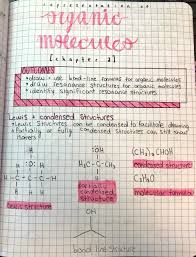 representation of
organic
molecules
[chapter 2]
OUTCOMES
• draw + use bond-line formulas for organic molecules
• draw resonance structures for organic molecules
• identify significant resonance structures
Lewis + condensed structures
• Lewis structures can be condensed to facilitate drawing
• Partially or fully condensed structures can still show
H
H :O: H
H-C-C-C-H
H H H
Lewis structure
OH
H₃C-C-CH₃
H
partially
condensed
structure
(CH₃)₂CHOH
condensed structure
C₃H₈O
molecular formula
OH
bond line structure